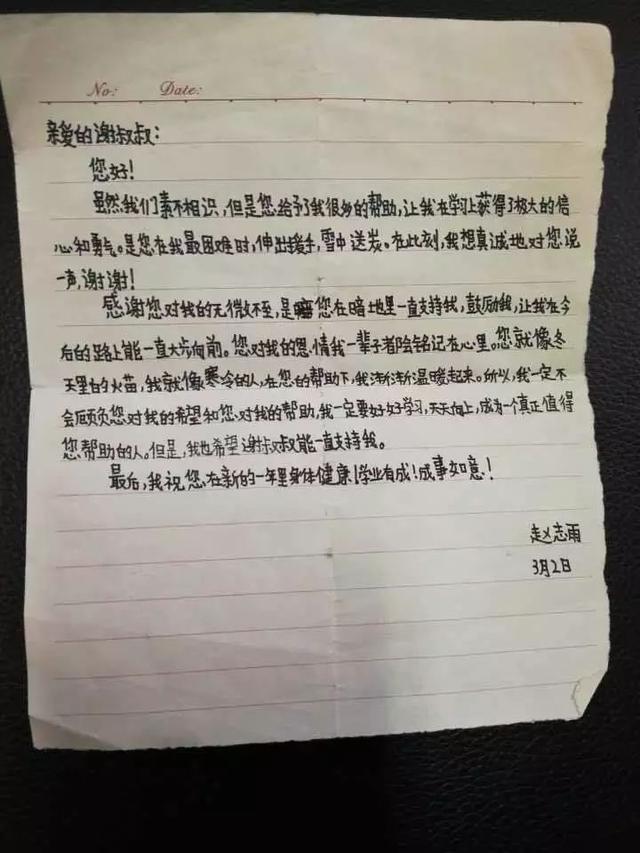 No: Date:
亲爱的谢叔叔:
您好!
虽然我们素不相识,但是您给予了我很多的帮助,让我在学习上获得了极大的信
心和勇气。是您在我最困难时,伸出援手,雪中送炭。在此刻,我想真诚地对您说
一声,谢谢!
感谢您对我的无微不至,是您在暗地里一直支持我,鼓励我,让我在今
后的路上能一直大步向前。您对我的恩情我一辈子都会铭记在心里。您就像冬
天里的火苗,我就像寒冷的人,在您的帮助下,我渐渐温暖起来。所以,我一定不
会辜负您对我的希望和您对我的帮助,我一定要好好学习,天天向上,成为一个真正值得
您帮助的人。但是,我也希望谢叔叔能一直支持我。
最后,我祝您在新的一年里身体健康!学业有成!成事如意!
赵志雨
3月2日